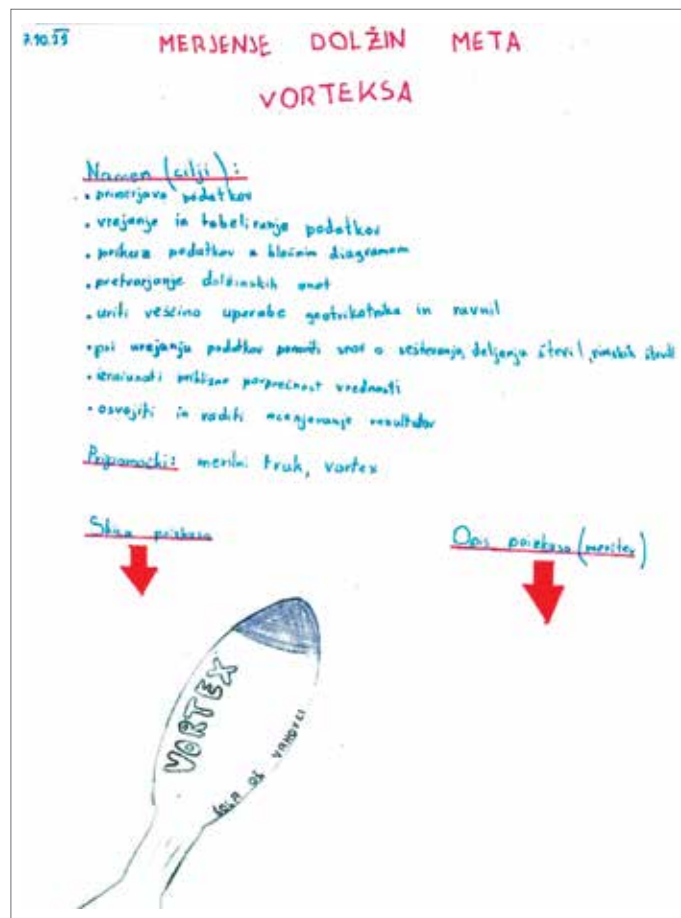 MERJENJE DOLŽIN META
VORTEKSA
Namen (cilji):
• primerjava podatkov
• urejanje in tabeliranje podatkov
• prikaz podatkov z bločnim diagramom
• pretvarjanje dolžinskih enot
• uriti veščino uporabe geotrikotnika in ravnil
• pri urejanju podatkov ponoviti snov o seštevanju, deljenju števil, rimskih števil
• izračunati približno povprečnost vrednosti
• osvojiti in raditi ocenjevanje rezultatov
Pripomočki: merilni trak, vortex
Skica poizkusa
Opis poizkusa (meritev)
VORTEX
ŠOLA OŠ